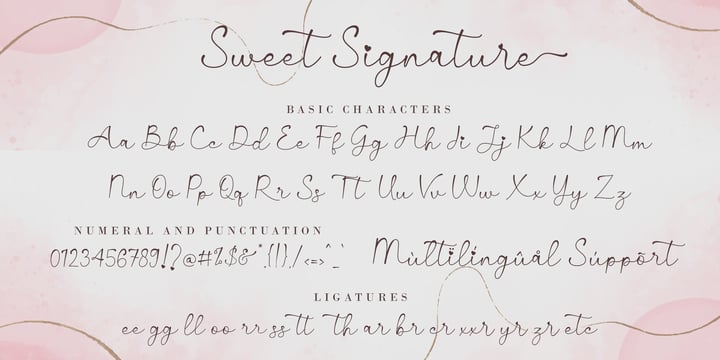 Sweet Signature
BASIC CHARACTERS
Aa Bb Cc Dd Ee Ff Gg Hh Ii Jj Kk Ll Mm
Nn Oo Pp Qq Rr Ss Tt Uu Vv Ww Xx Yy Zz
NUMERAL AND PUNCTUATION
0123456789!?@#%$&*.{|}./<=>^_`
Mùltïlíngûål Súppõrt
LIGATURES
ee gg ll oo rr ss tt Th ar br cr xxr yr zr etc